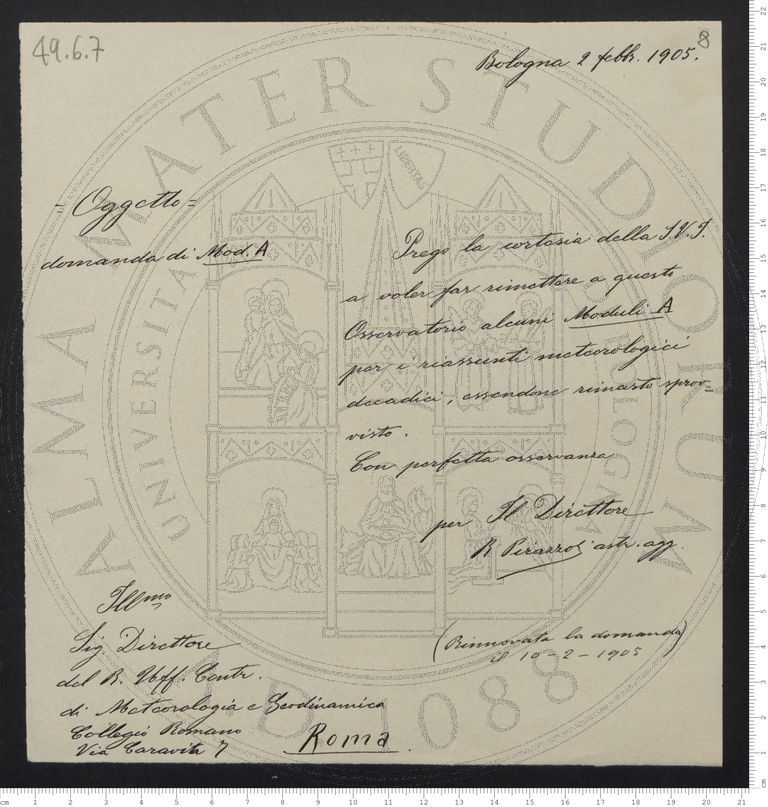 49.6.7
8
Bologna 2 febb. 1905.
= Oggetto =
domanda di Mod. A
Prego la cortesia della S.V.I.
a voler far rimettere a questo
Osservatorio alcuni Moduli A
per i riassunti meteorologici
decadici, essendone rimasto sprov=
visto.
Con perfetta osservanza
per Il Direttore
R. Pirazzoli astr. agg.
(Rinnovata la domanda)
il 10-2-1905
Illmo
Sig Direttore
del R. Uff. Centr.
di Meteorologia e Geodinamica
Collegio Romano
Via Caravita 7
Roma.
ALMA MATER STUDIORUM
UNIVERSITA
BOLOGNA
LIBERTAS
A.D. 1088